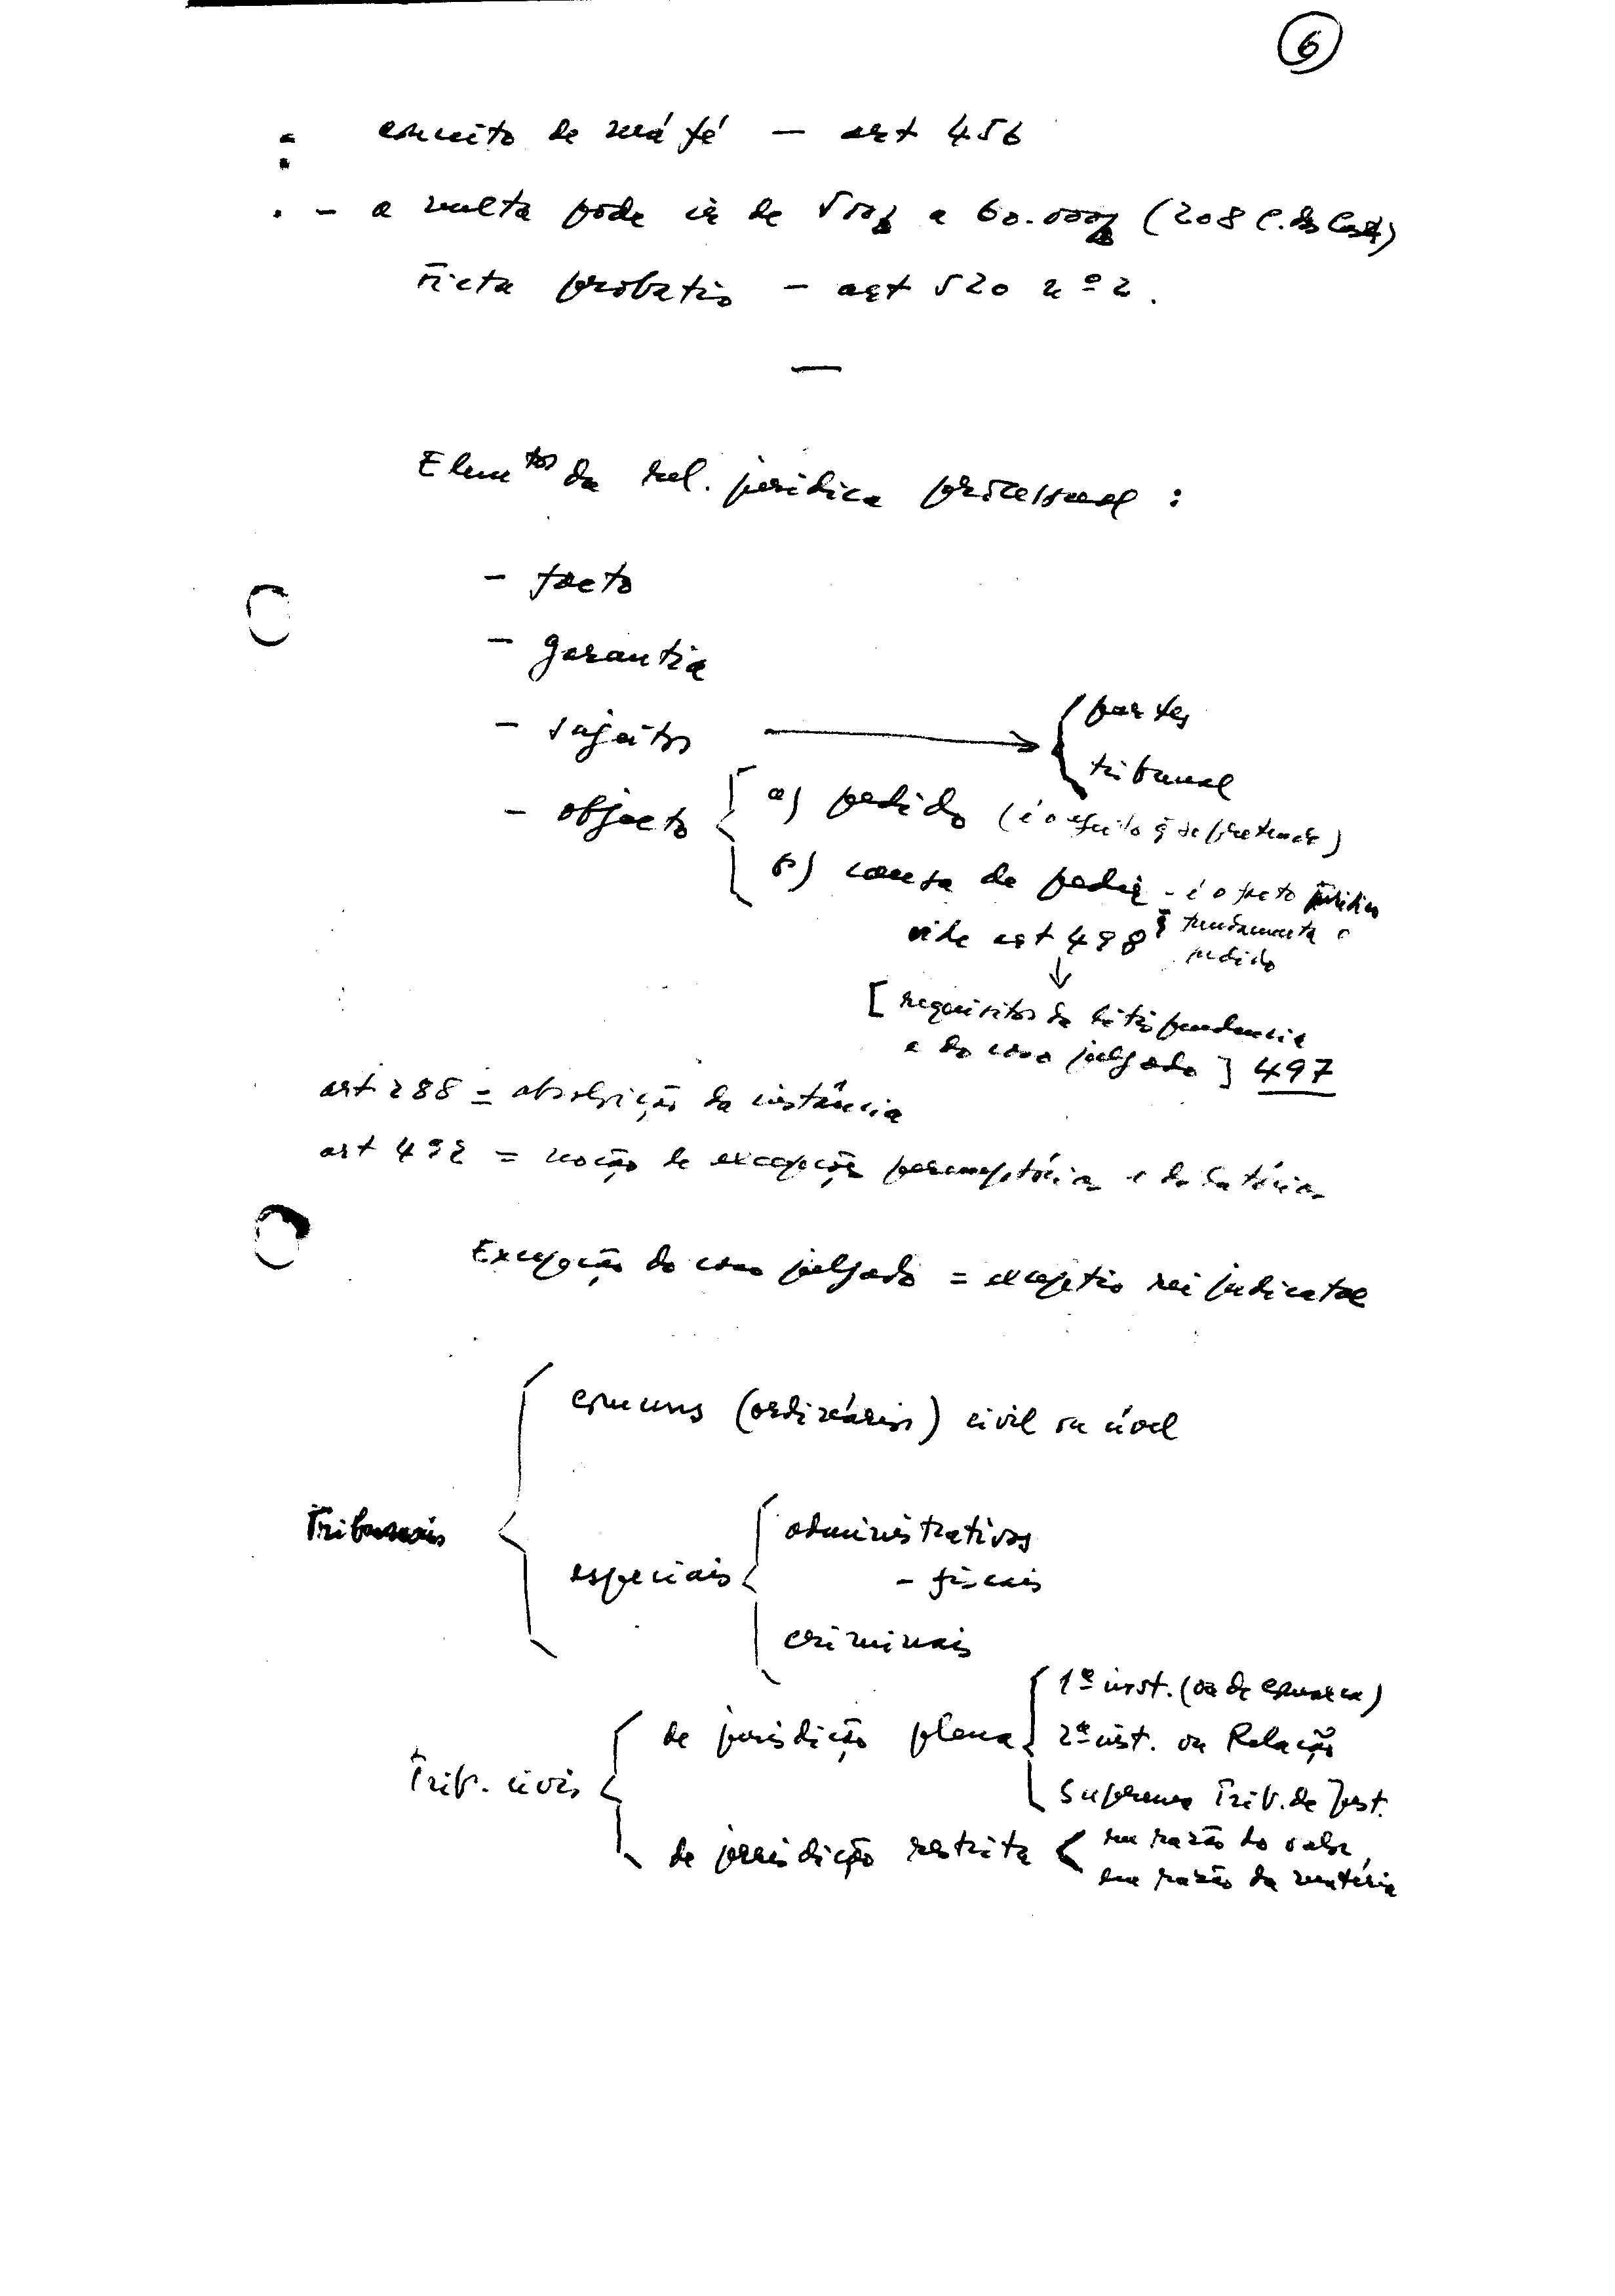 6
conceito de má fé — art 456
- a multa pode ir de 500$ a 60.000$ (208 C. das Cust)
Ficta probatio — art 520 nº 2.
—
Elemtos da rel. jurídica processual :
- facto
- garantia
- sujeitos → { partes
tribunal
- objecto { a) pedido (é o efeito q̃ se pretende)
b) causa de pedir - é o facto jurídico
vide art 498 q̃ fundamenta o
pedido
↓
[ requisitos da litispendencia
e do caso julgado ] 497
art 288 = absolvição da instância
art 492 = noção de excepção peremptória e dilatória
Excepção do caso julgado = exceptio rei judicatae
Tribunais { comuns (ordinários) civil ou cível
especiais { administrativos
- fiscais
criminais
Trib. civis { de jurisdição plena { 1ª inst. (ou de comarca)
2ª inst. ou Relação
Supremo Trib. de Just.
de jurisdição restrita < em razão do valor,
em razão da matéria